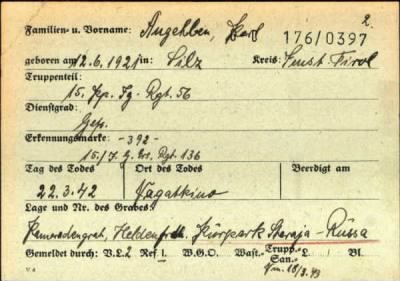 2.
Familien- u. Vorname: Angehben, Karl 176/0397
geboren am 12.6.1921 in: Silz Kreis: Imst Tirol
Truppenteil:
15. Kp. Jg. Rgt. 56
Dienstgrad:
Gefr.
Erkennungsmarke: -392-
15./ J. G. Ers. Rgt. 136
Tag des Todes Ort des Todes Beerdigt am
22.3.42 Vagatkino
Lage und Nr. des Grabes:
Kameradengrab, Heldenfrdh. Kurpark Staraja-Rüssa
Gemeldet durch: V.L. 2 Ref 1. W.G.O. Wast.- Trupp.- L./ Bl.
San.-
V 4 18/3.43